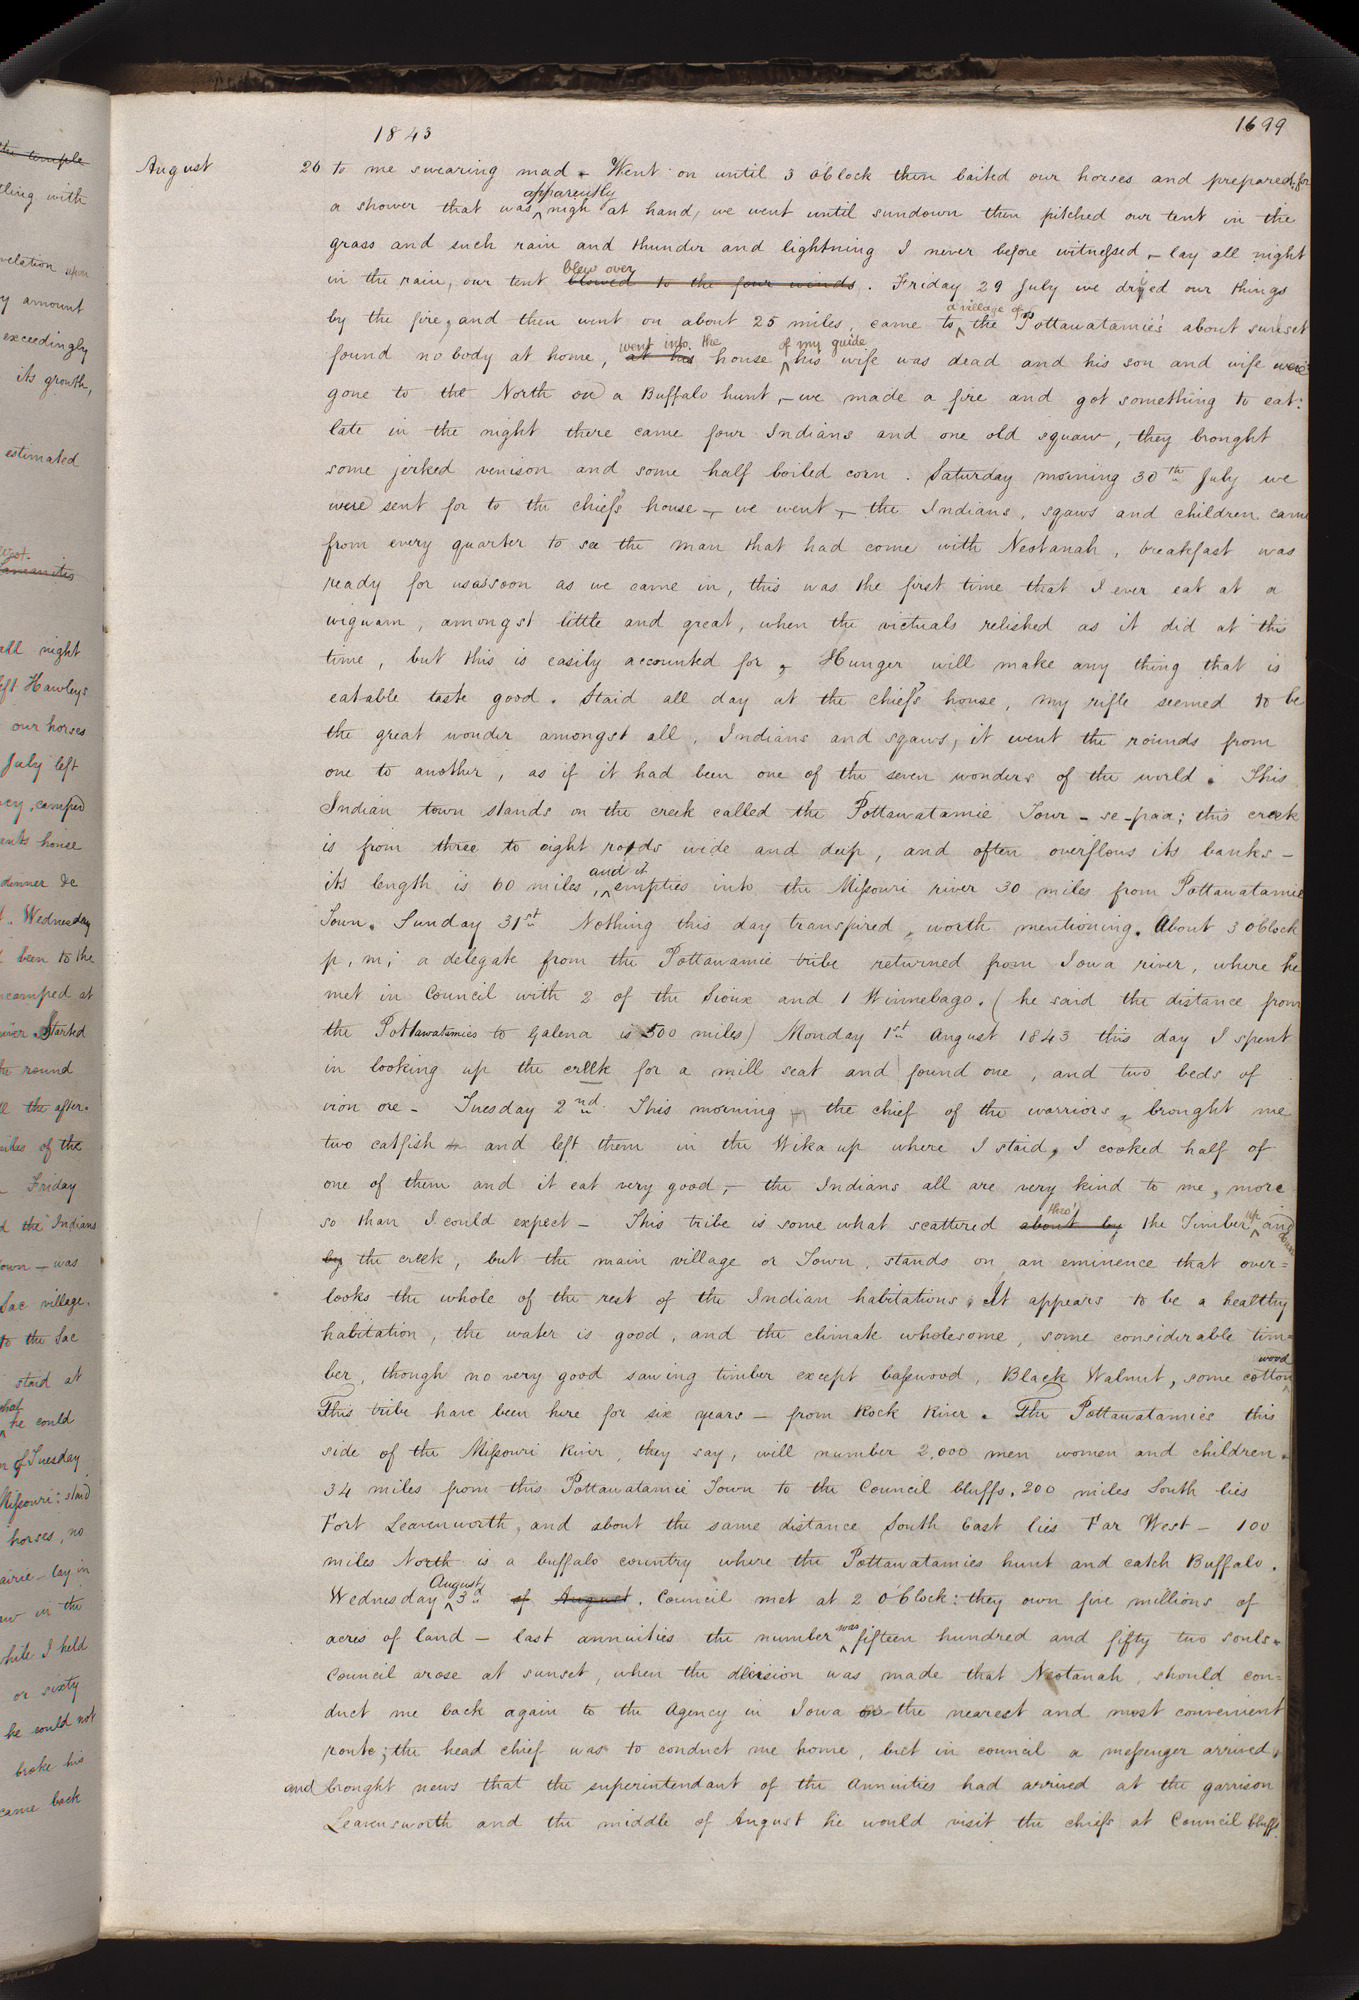 the temple
tling with
velation upon
y amount
exceedingly
its growth,
estimated
all night
left Hawleys
our horses
July left
camped
ents house
dinner &c
Wednesday
been to the
ncamped at
Started
round
the after-
miles of the
Friday
d the Indians
own - was
Sac village.
to the Sac
staid at
what
he could
n of Tuesday
Missouri: staid
horses, no
airie - lay in
in the
while I held
or sixty
he could not
broke his
came back
1843
1699
August
26 to me swearing mad - Went on until 3 oClock then baited our horses and prepared for
apparently
a shower that was ^ nigh at hand, we went until sundown then pitched our tent in the
grass and such rain and thunder and lightning I never before witnessed, - lay all night
blew over
in the rain, our tent blowed to the four winds. Friday 29 July we dryed our things
a village of
by the fire, and then went on about 25 miles, came to ^ the Pottawatamie's about sunset
went into the of my guide
found nobody at home, at his house ^ his wife was dead and his son and wife were
gone to the North on a Buffalo hunt, - we made a fire and got something to eat:
late in the night there came four Indians and one old squaw, they brought
some jerked venison and some half boiled corn. Saturday morning 30th July we
were sent for to the chief's house -, we went, - the Indians, sqaws and children came
from every quarter to see the man that had come with Neotanah, breakfast was
ready for us assoon as we came in, this was the first time that I ever eat at a
wigwam, amongst little and great, when the victuals relished as it did at this
time, but this is easily accounted for, Hunger will make any thing that is
eatable taste good. Staid all day at the chief's house, my rifle seemed to be
the great wonder amongst all, Indians and sqaws, it went the rounds from
one to another, as if it had been one of the seven wonders of the world. This
Indian town stands on the creek called the Pottawatamie Tour - se-paa; this creek
is from three to eight rods wide and deep, and often overflows its banks -
and it
its length is 60 miles, ^ empties into the Missouri river 30 miles from Pottawatamie
Town. Sunday 31st Nothing this day transpired, worth mentioning. About 3 oClock
p, m; a delegate from the Pottawamie tribe returned from Iowa river, where he
met in Council with 2 of the Sioux and 1 Winnebago. (he said the distance from
the Pottawatamies to Galena is 500 miles) Monday 1st August 1843 this day I spent
in looking up the creek for a mill seat and found one, and two beds of
iron ore - Tuesday 2nd. This morning the chief of the warriors, brought me
two catfish and left them in the Wika up where I staid, I cooked half of
one of them and it eat very good, - the Indians all are very kind to me, more
thro' up
so than I could expect - This tribe is some what scattered about by the Timber ^ and down
by the creek, but the main village or Town, stands on an eminence that over=
looks the whole of the rest of the Indian habitations. It appears to be a healthy
habitation, the water is good, and the climate wholesome, some considerable tim=
wood
ber, though no very good sawing timber except basswood, Black Walnut, some cotton ^
This tribe have been here for six years - from Rock River. The Pottawatamies this
side of the Missouri River, they say, will number 2,000 men women and children.
34 miles from this Pottawatamie Town to the Council bluffs, 200 miles South lies
Fort Leavenworth, and about the same distance South East lies Far West - 100
miles North is a buffalo country where the Pottawatamies hunt and catch Buffalo.
August
Wednesday ^ 3d of August. Council met at 2 OClock: they own five millions of
was
acres of land - last annuities the number ^ fifteen hundred and fifty two souls.
Council arose at sunset, when the decision was made that Neotanah, should con=
duct me back again to the Agency in Iowa on the nearest and most convenient
route; the head chief was to conduct me home, but in council a messenger arrived,
and brought news that the superintendant of the annuities had arrived at the garrison
Leavensworth and the middle of August he would visit the chiefs at Council bluffs.